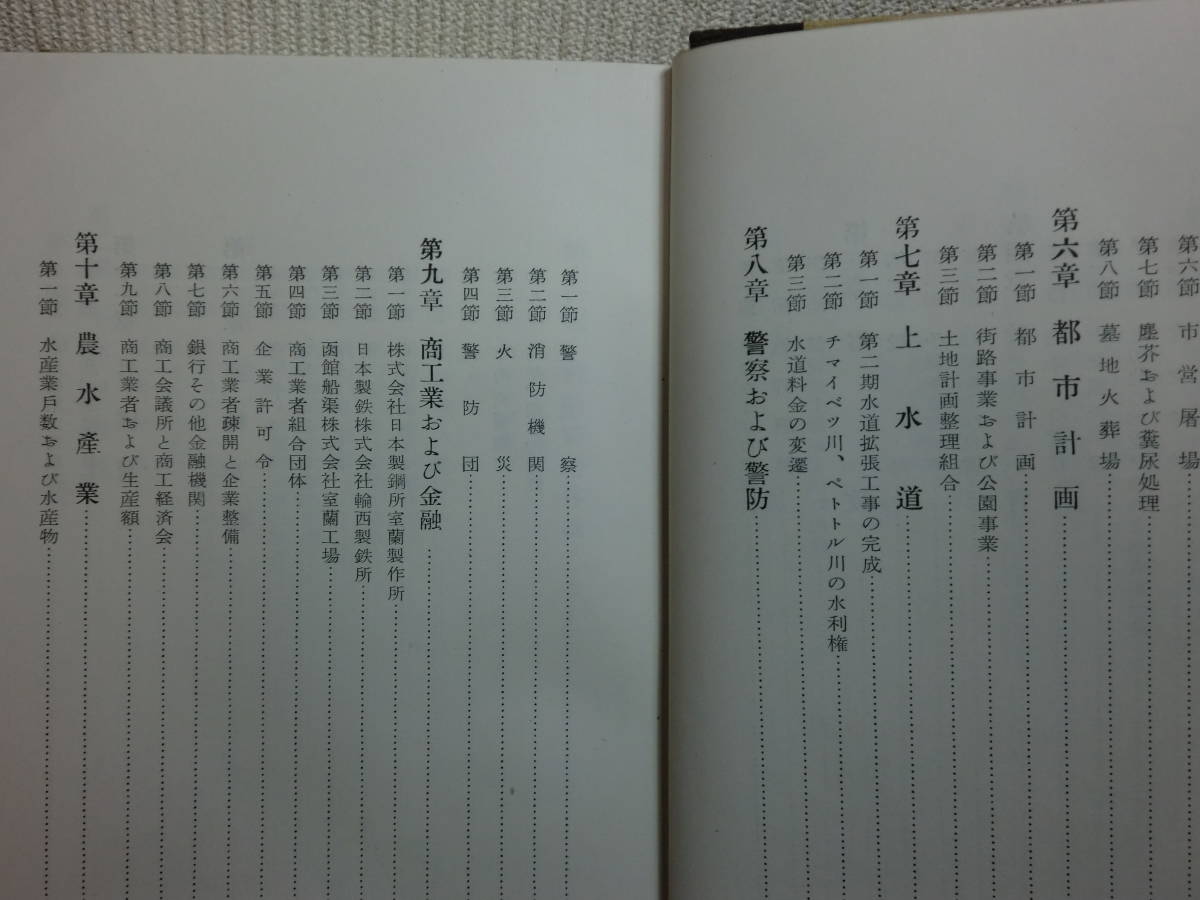 第六節 市営屠場
第七節 塵芥および糞尿処理
第八節 墓地火葬場
第六章 都市計画
第一節 都市計画
第二節 街路事業および公園事業
第三節 土地計画整理組合
第七章 上水道
第一節 第二期水道拡張工事の完成
第二節 チマイベツ川、ペトトル川の水利権
第三節 水道料金の変遷
第八章 警察および警防
第一節 警察
第二節 消防機関
第三節 火災
第四節 警防団
第九章 商工業および金融
第一節 株式会社日本製鋼所室蘭製作所
第二節 日本製鉄株式会社輪西製鉄所
第三節 函館船渠株式会社室蘭工場
第四節 商工業者組合団体
第五節 企業許可令
第六節 商工業者疎開と企業整備
第七節 銀行その他金融機関
第八節 商工会議所と商工経済会
第九節 商工業者および生産額
第十章 農水産業
第一節 水産業戸数および水産物